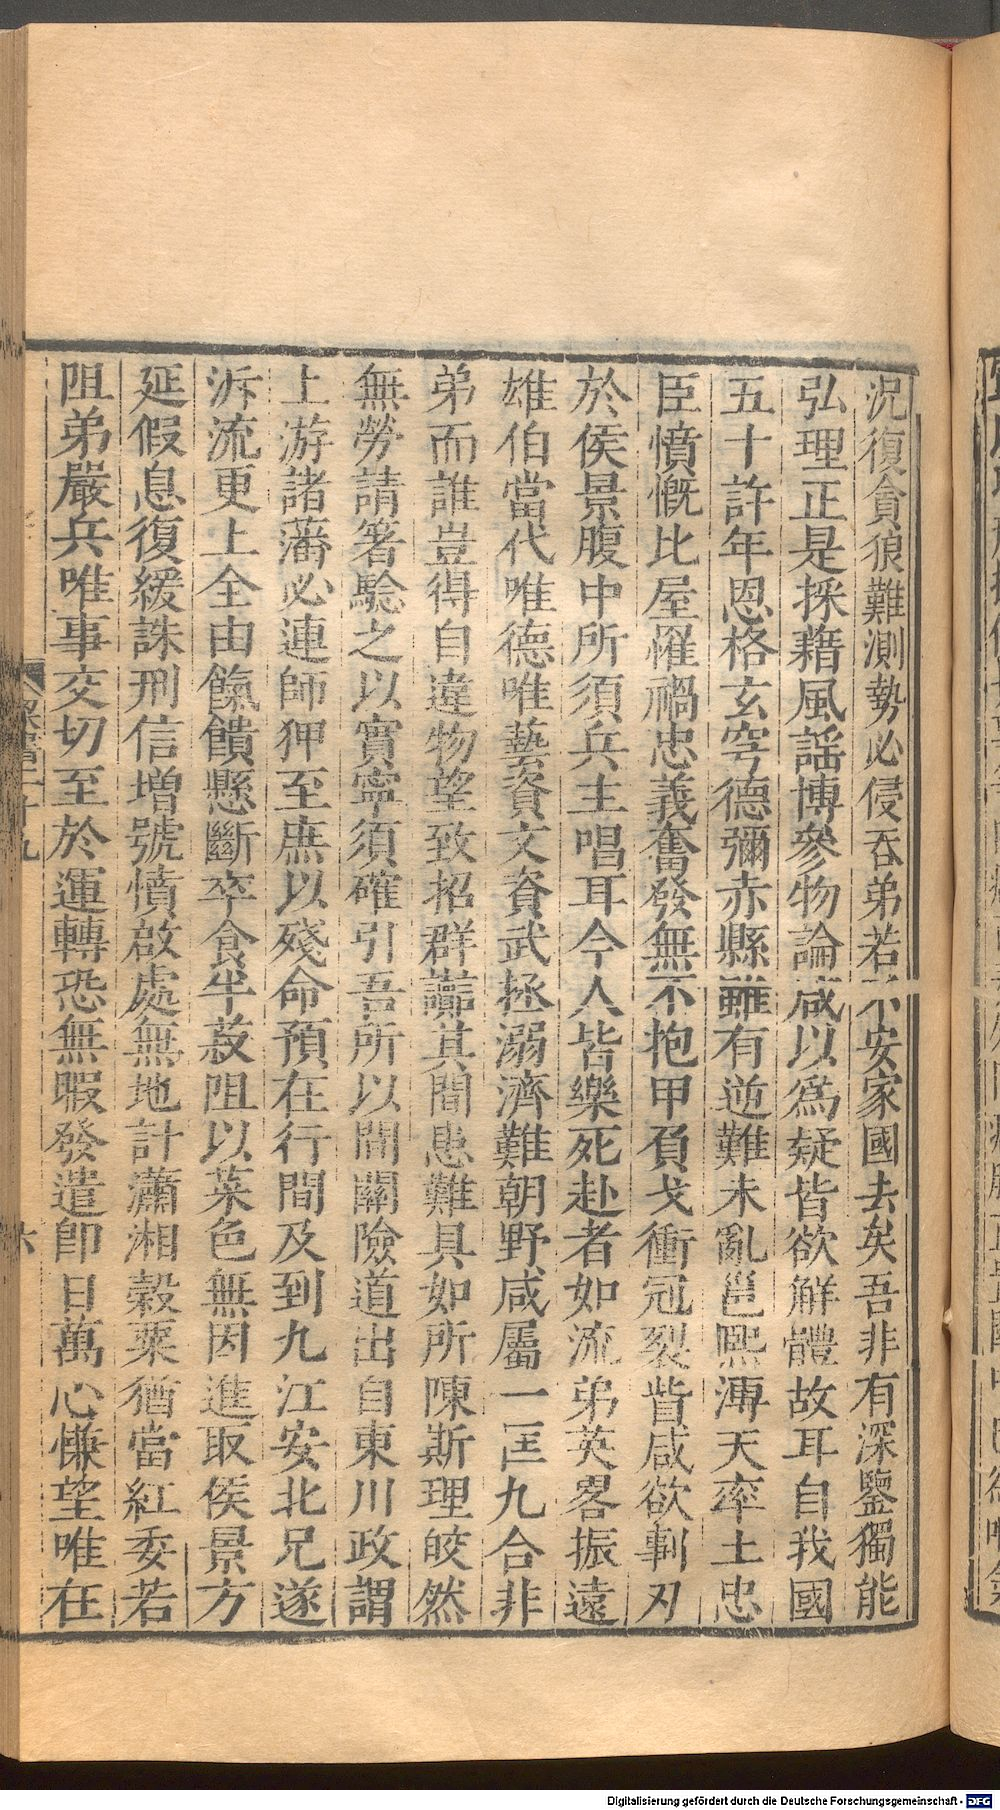 況復貪狼難測勢必侵吞弟若不安家國去矣吾非有深鑒獨能
弘理正是採藉風謡博參物論咸以爲疑皆欲解體故耳自我國
五十許年恩格玄穹德彌赤縣雖有逆難未亂邕熙溥天率土忠
臣憤慨比屋罹禍忠義奮發無不抱甲負戈衝冠裂眥咸欲剚刃
於侯景腹中所須兵主唱耳今人皆樂死赴者如流弟英畧振遠
雄伯當代唯德唯藝資文資武拯溺濟難朝野咸屬一匡九合非
弟而誰豈得自違物望致招群讟其間患難具如所陳斯理皎然
無勞請箸驗之以實寧須確引吾所以間關險道出自東川政謂
上游諸藩必連師狎至庶以殘命預在行間及到九江安北兄遂
泝流更上全由餼饋懸斷卒食半菽阻以菜色無因進取侯景方
延假息復緩誅刑信增號憤啟處無地計瀟湘穀粟猶當紅委若
阻弟嚴兵唯事交切至於運轉恐無暇發遣卽日萬心慊望唯在
Digitalisierung gefördert durch die Deutsche Forschungsgemeinschaft - DFG